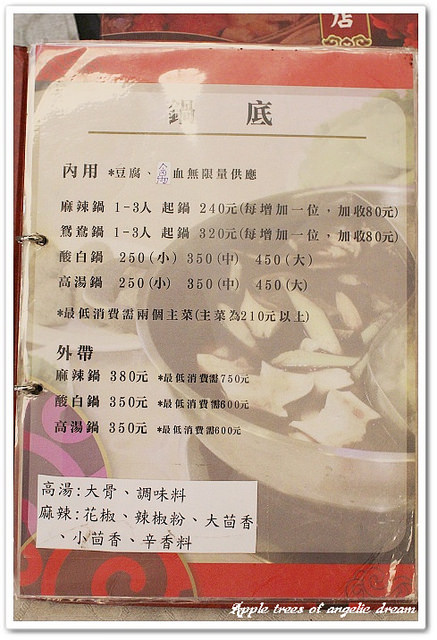 店
鍋 底
內用 *豆腐、 血無限量供應
麻辣鍋 1-3人 起鍋 240元(每增加一位，加收80元)
鴛鴦鍋 1-3人 起鍋 320元(每增加一位，加收80元)
酸白鍋 250(小) 350(中) 450(大)
高湯鍋 250(小) 350(中) 450(大)
*最低消費需兩個主菜(主菜為210元以上)
外帶
麻辣鍋 380元 *最低消費需750元
酸白鍋 350元 *最低消費需600元
高湯鍋 350元 *最低消費需600元
高湯:大骨、調味料
麻辣:花椒、辣椒粉、大茴香
、小茴香、辛香料
Apple trees of angelic dream